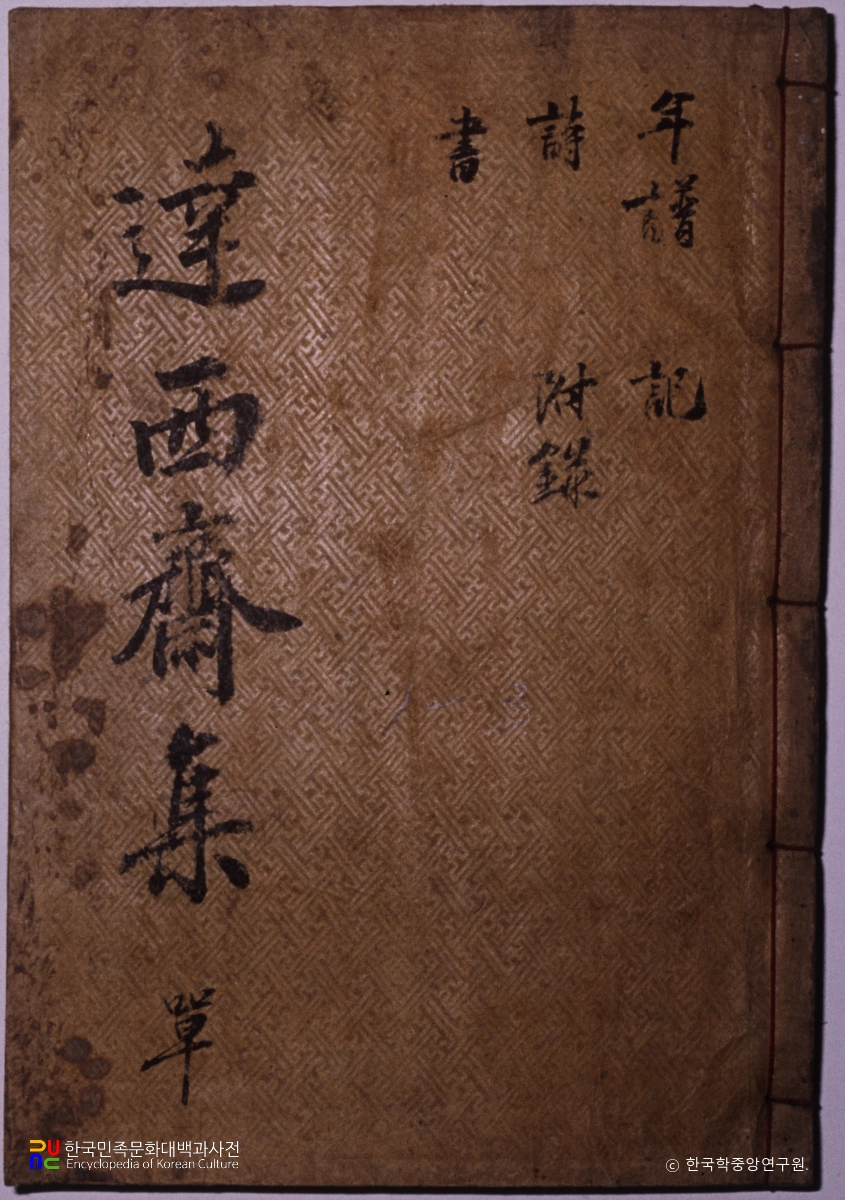 年譜
詩
書
記
附錄
達西齋集 單
한국민족문화대백과사전
Encyclopedia of Korean Culture
ⓒ 한국학중앙연구원.